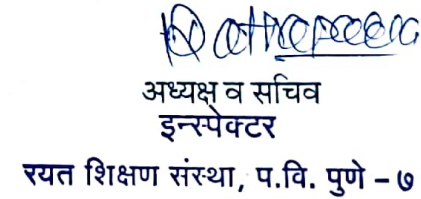 अध्यक्ष व सचिव
इन्स्पेक्टर
रयत शिक्षण संस्था, प.वि. पुणे - ७